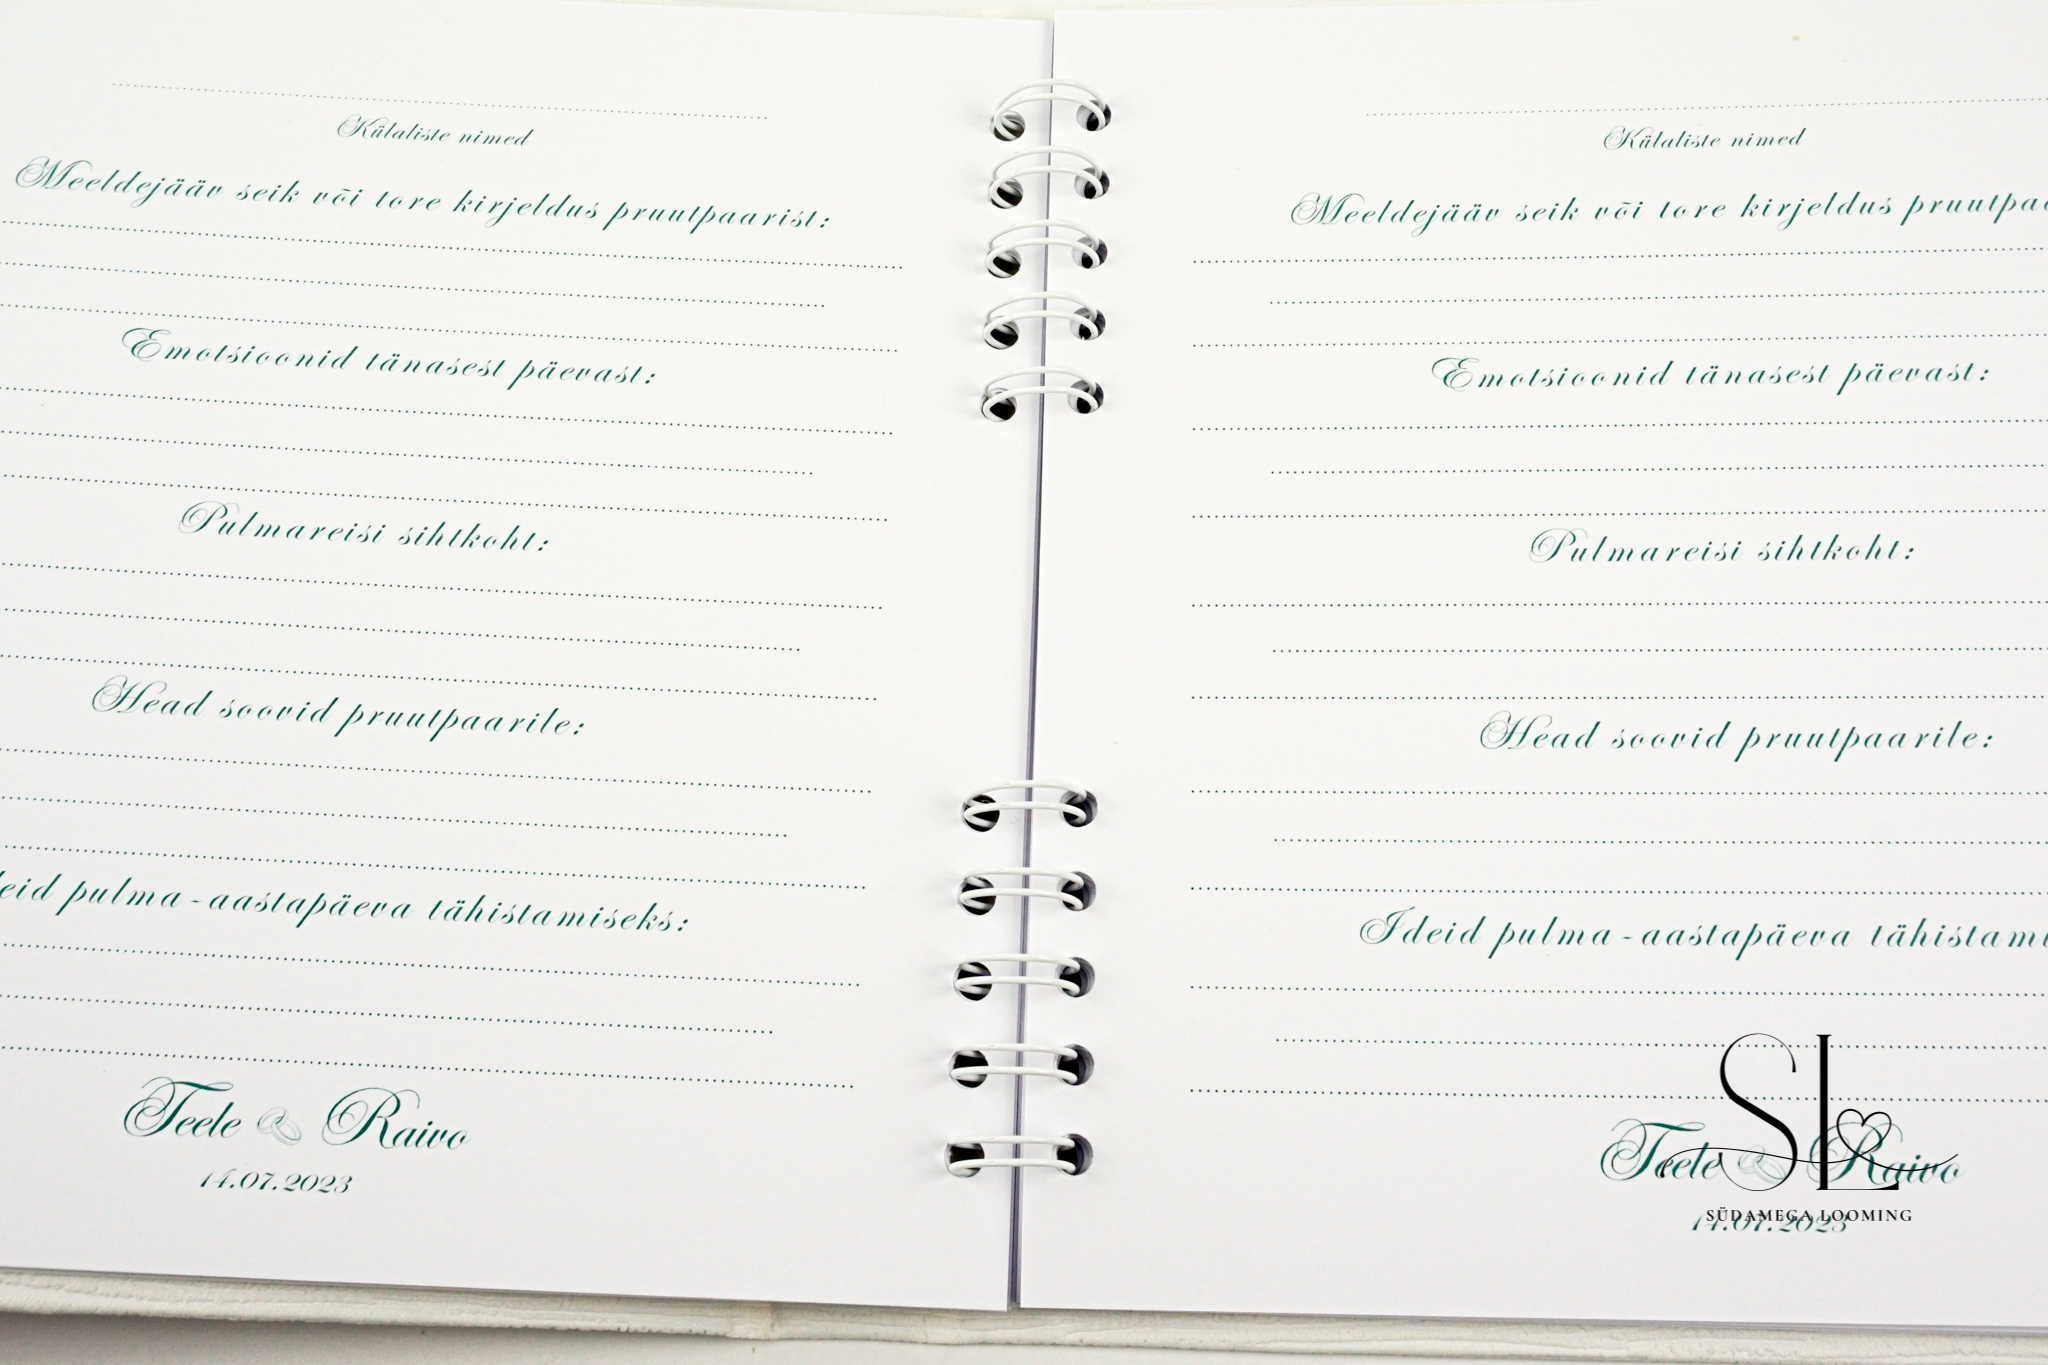 Külaliste nimed
Meeldejääv seik või tore kirjeldus pruutpaarist:
Emotsioonid tänasest päevast:
Pulmareisi sihtkoht:
Head soovid pruutpaarile:
pulma-aastapäeva tähistamiseks:
Teele Raivo
14.07.2023
Külaliste nimed
Meeldejääv seik või tore kirjeldus
Emotsioonid tänasest päevast:
Pulmareisi sihtkoht:
Head soovid pruutpaarile:
Ideid pulma-aastapäeva
Teele Raivo
14.07.2023
SL
SÜDAMEGA LOOMING